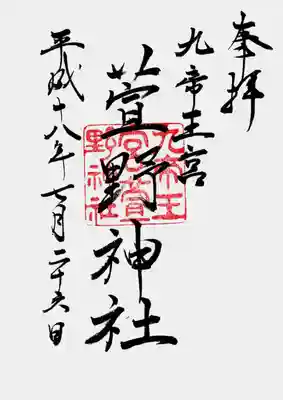 奉拝
九帝王宮
萱野神社
九帝王
宮萱
野神社
平成十八年七月二十六日